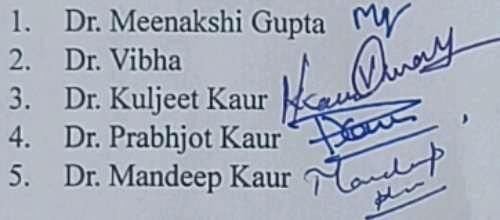 1. Dr. Meenakshi Gupta
2. Dr. Vibha
3. Dr. Kuljeet Kaur
4. Dr. Prabhjot Kaur
5. Dr. Mandeep Kaur Mandeep